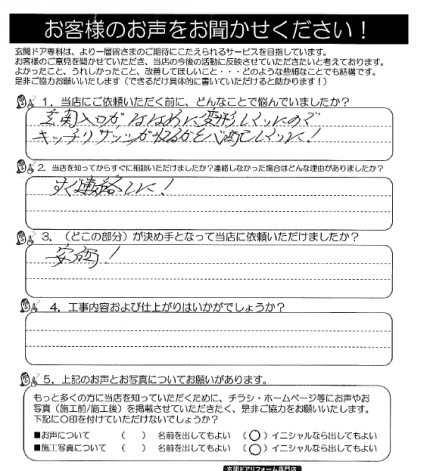 お客様のお声をお聞かせください！
玄関ドア専科は、より一層皆さまのご期待にこたえられるサービスを目指しています。
お客様のご意見を聞かせていただき、当店の今後の活動に反映させていただきたいと考えております。
よかったこと、うれしかったこと、改善してほしいこと・・・どのような些細なことでも結構です。
是非ご協力お願いします（できるだけ具体的に書いていただけると助かります！）
1．当店にご依頼いただく前に、どんなことで悩んでいましたか？
玄関入口がななめに変形していたので
キッチリサッシが
2．当店を知ってからすぐに相談いただけましたか？連絡しなかった場合はどんな理由がありましたか？
すぐ連絡した！
3．（どこの部分）が決め手となって当店に依頼いただけましたか？
4．工事内容および仕上がりはいかがでしょうか？
5．上記のお声とお写真についてお願いがあります。
もっと多くの方に当店を知っていただくために、チラシ・ホームページ等にお声やお
写真（施工前/施工後）を掲載させていただきたく、是非ご協力をお願いいたします。
下記に○印を付けていただけないでしょうか？
■お声について （　） 名前を出してもよい （○） イニシャルなら出してもよい
■施工写真について （　） 名前を出してもよい （○） イニシャルなら出してもよい
玄関ドアリフォーム専門店